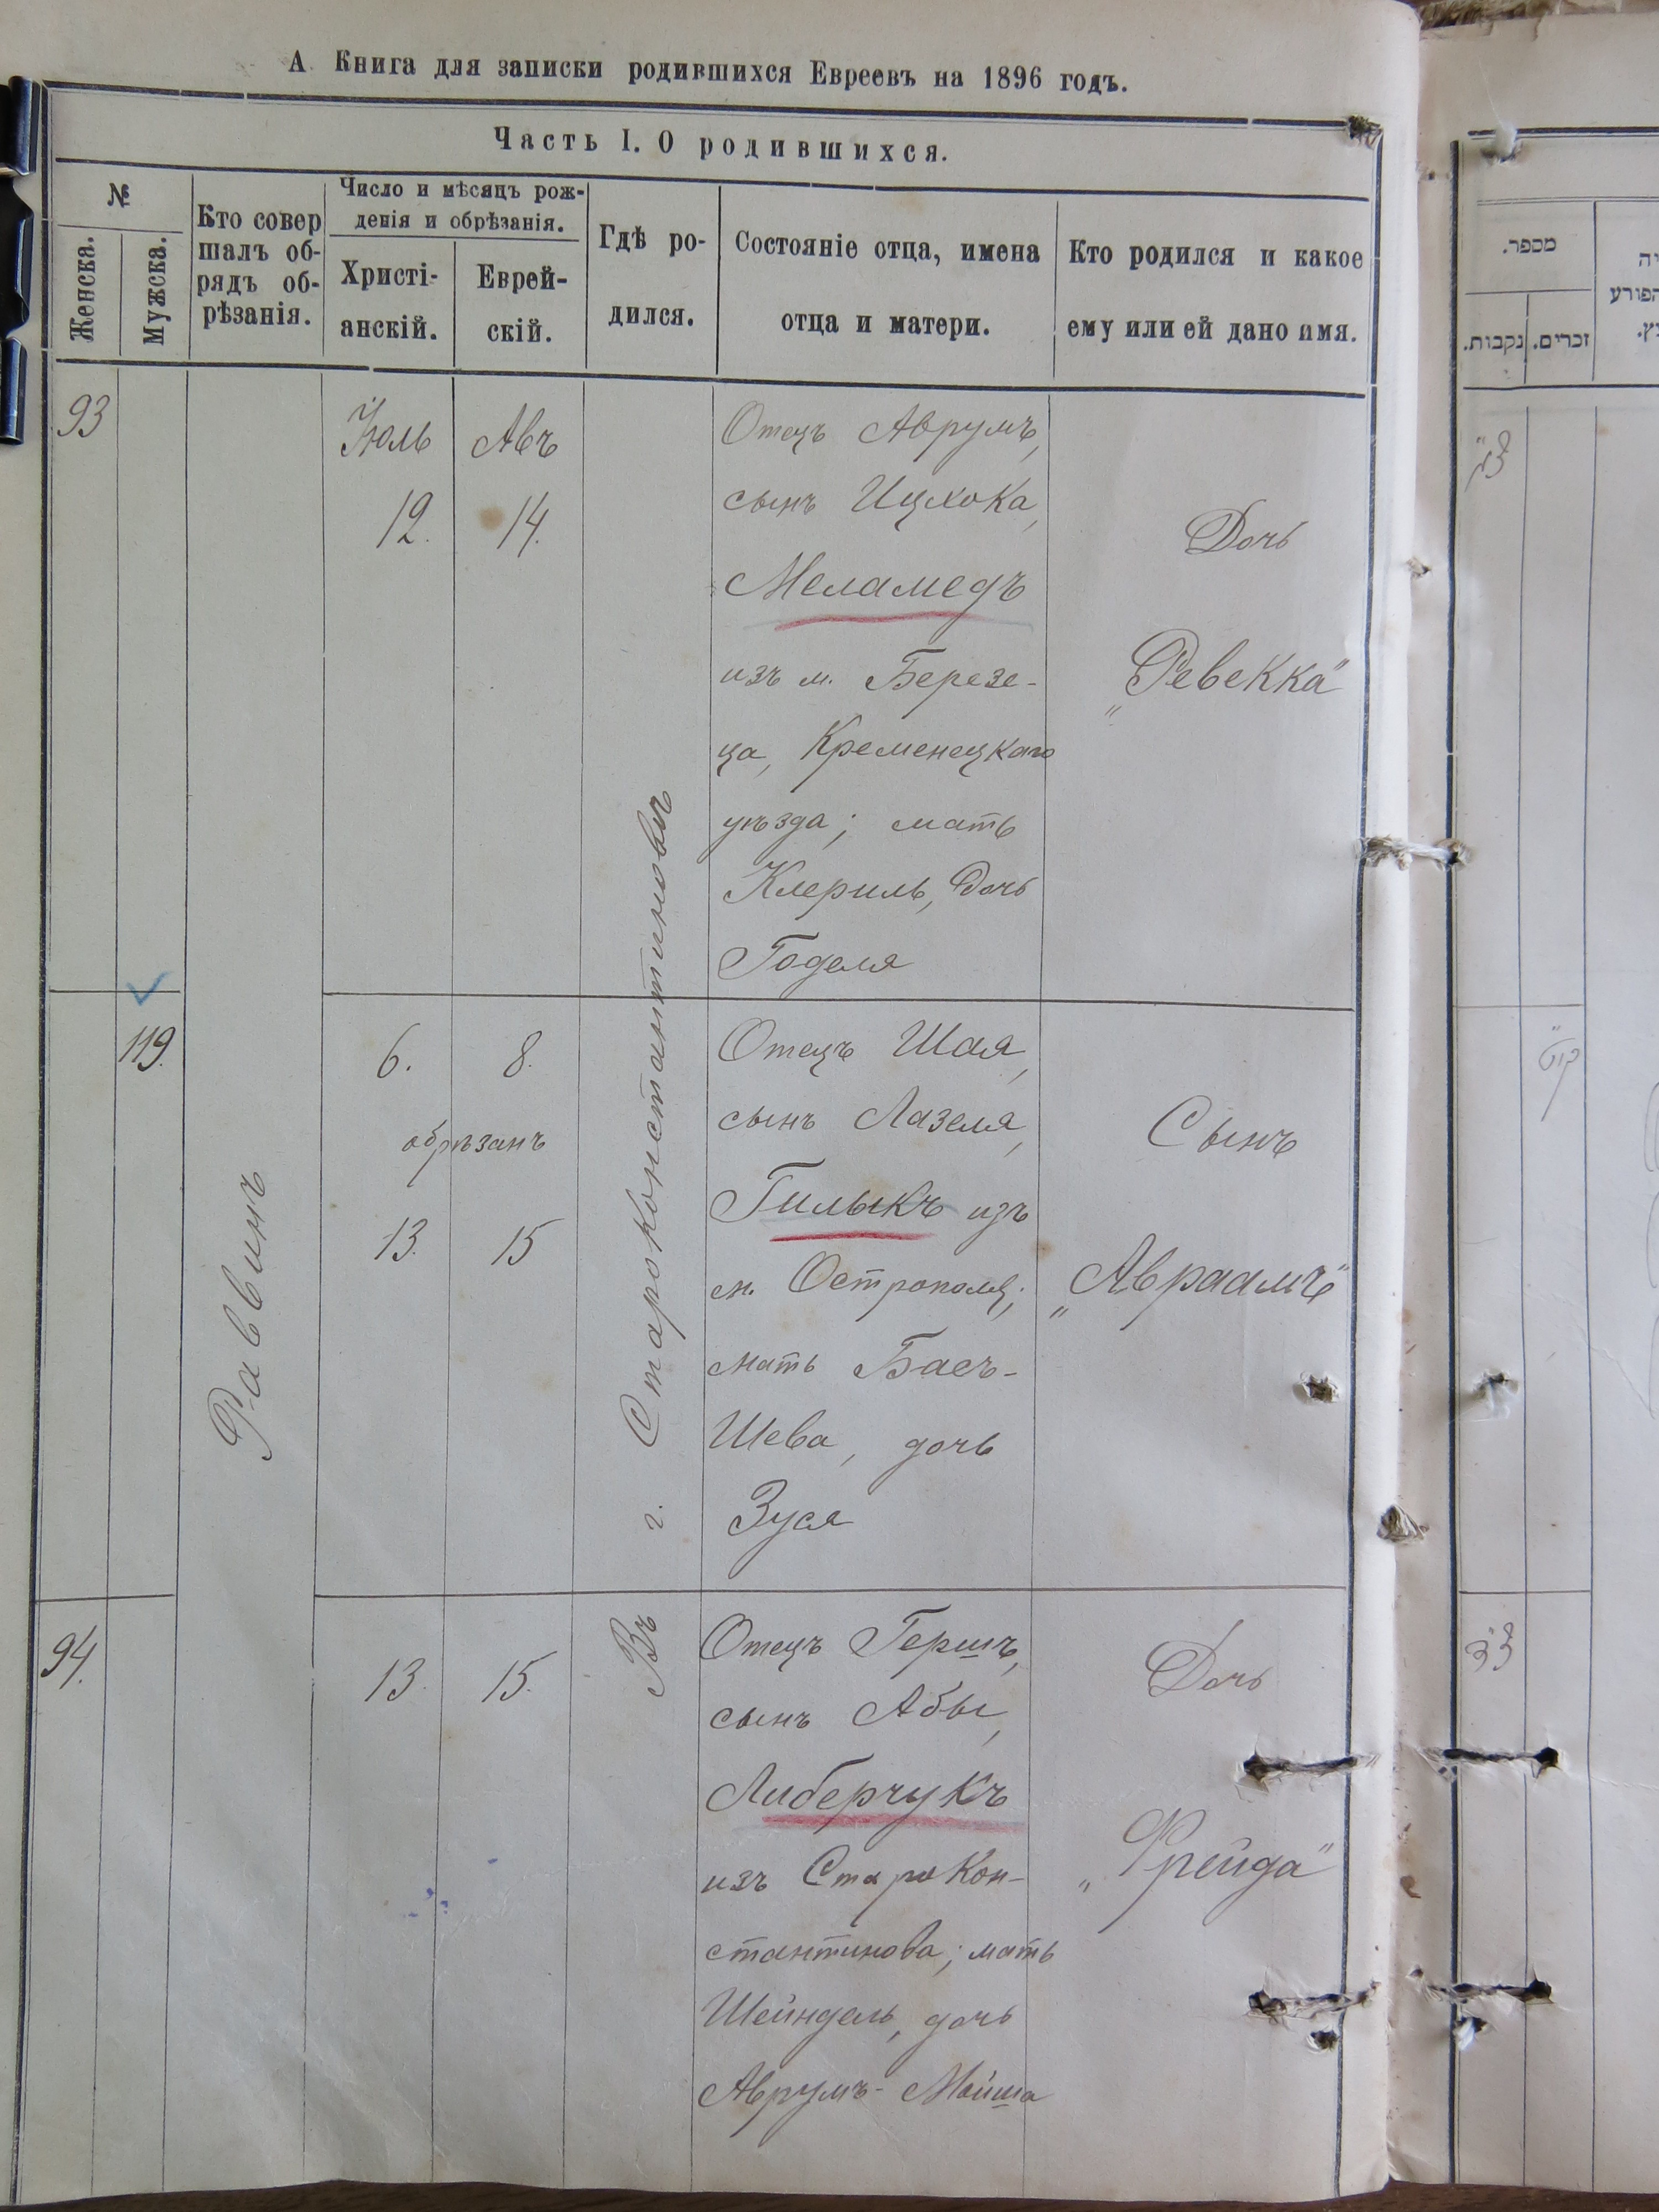 А Книга для записки родившихся Евреевъ на 1896 годъ.
Часть I. О родившихся.
№
Женска.
Мужска.
Кто совер
шалъ об-
рядъ об-
рѣзанія.
Число и мѣсяцъ рож-
денія и обрѣзанія.
Христі-
анскій.
Еврей-
скій.
Гдѣ ро-
дился.
Состояніе отца, имена
отца и матери.
Кто родился и какое
ему или ей дано имя.
93
Раввинъ
Іюль
12.
Авъ
14.
Въ г. Староконстантиновѣ
Отецъ Аврумъ,
сынъ Ицхока,
Меламедъ
изъ м. Березе-
ца, Кременецкаго
уѣзда; мать
Клериль, дочь
Годеля
Дочь
„Ревекка"
119.
6. 8.
обрѣзанъ
13. 15
Отецъ Шая,
сынъ Лазеля,
Гилыкъ изъ
м. Острополя;
мать Басъ-
Шева, дочь
Зуся
Сынъ
„Авраамъ"
94.
13. 15.
Отецъ Гершъ,
сынъ Абы,
Либерчукъ
изъ СтароКон-
стантинова; мать
Шейндель, дочь
Аврумъ-Мойша
Дочь
„Фрейда"
מספר.
נקבות.
זכרים.
הפורע
צ"ג
קי"ט
צ"ד